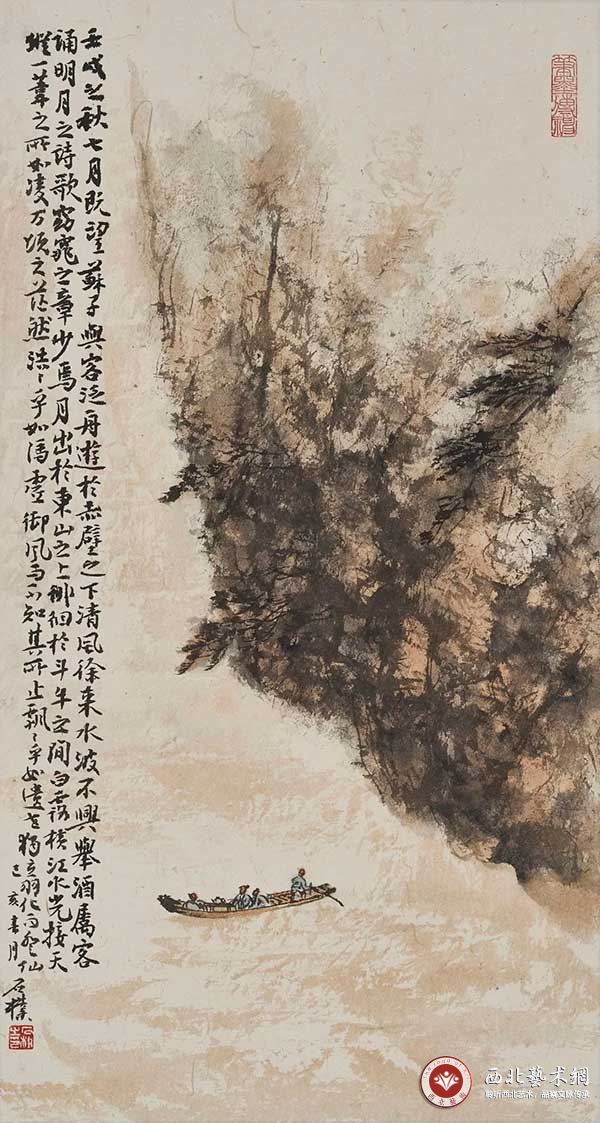 壬戌之秋七月既望蘇子與客泛舟遊於赤壁之下清風徐来水波不興舉酒属客
誦明月之詩歌窈窕之章少焉月出於東山之上徘徊於斗牛之間白露横江水光接天
縱一葦之所如凌万頃之茫然浩〻乎如馮虚御风而不知其所止飄〻乎如遗世独立羽化而登仙
己亥春月
石樸
西北藝术網
聆听西北艺术，文脉传承